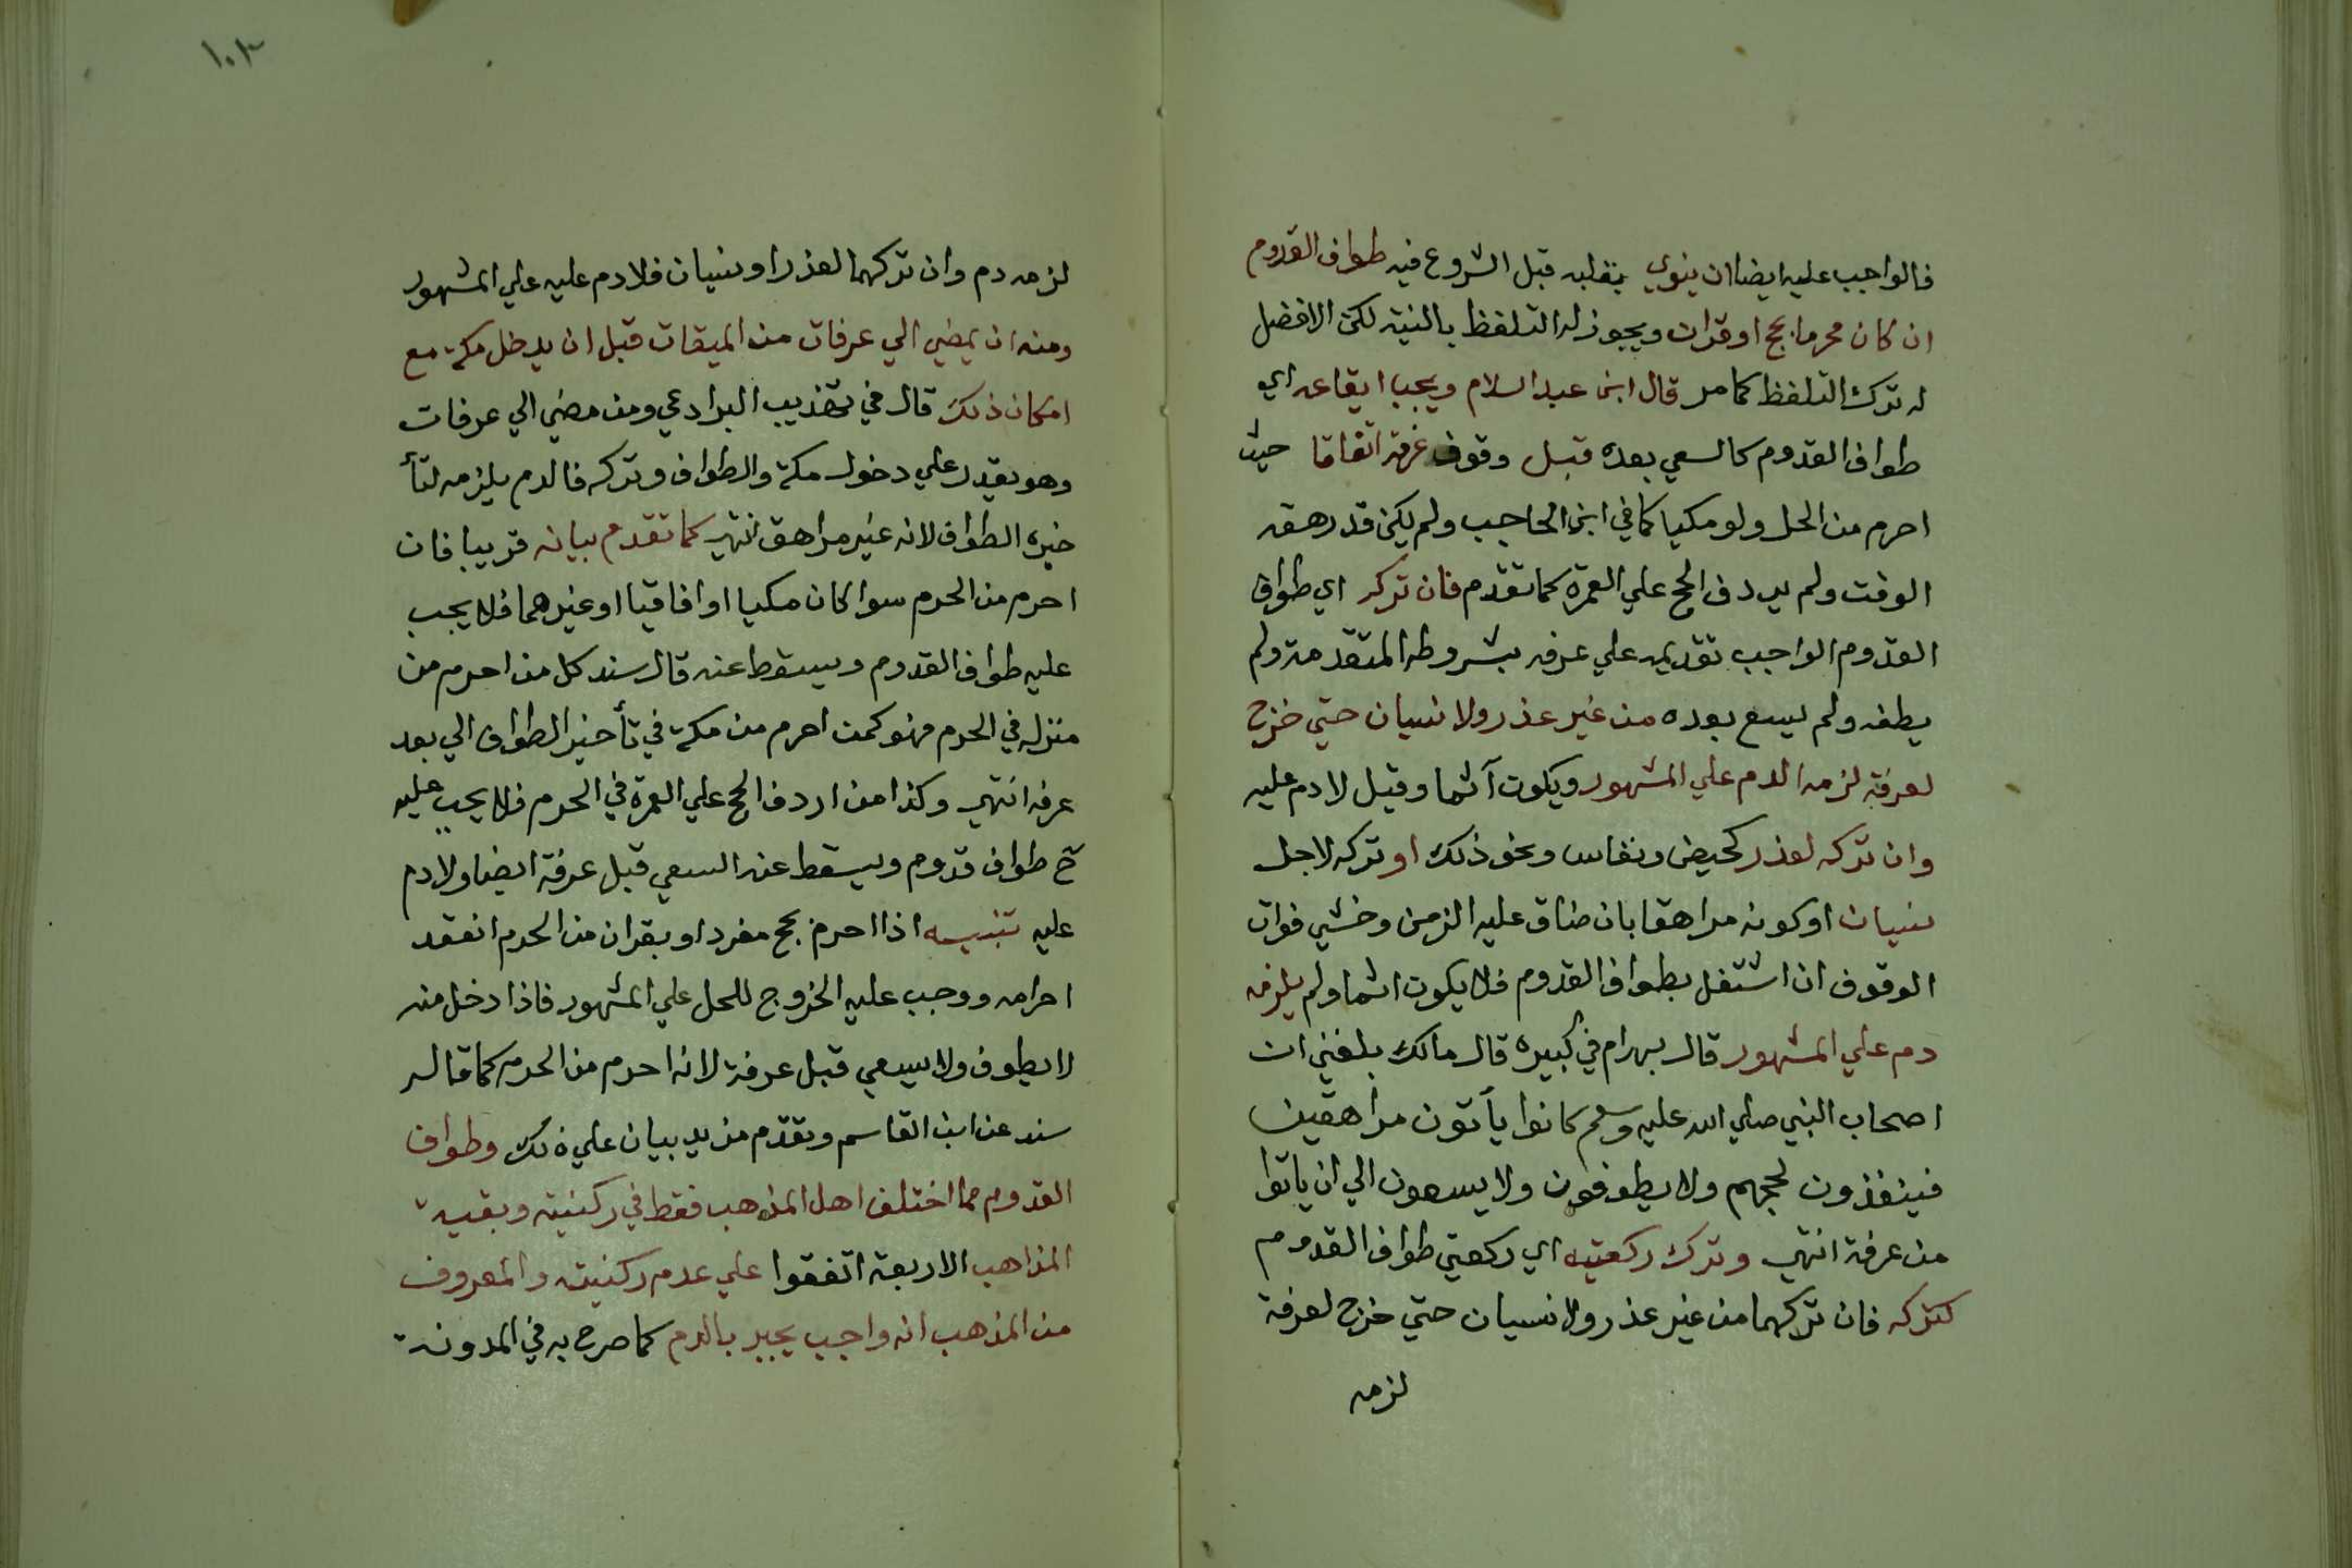 فالواجب عليه ايضا ان ينوي بقلبه قبل الشروع فيه طواف القدوم
ان كان محرما بحج او قران ويجوز له التلفظ بالنية لكن الافضل
له ترك التلفظ كما مر قال ابن عبد السلام ويجب ايقاعه اي
طواف القدوم كالسعي بعده قبل وقوف عرفة اتفاقا حيث
احرم من الحل ولو مكيا كما في ابن الحاجب ولم يكن قد رهقه
الوقت ولم يردف الحج علي العمرة كما تقدم فان تركه اي طواف
القدوم الواجب تقديمه علي عرفه بشروطه المتقدمة ولم
يطفه ولم يسع بعده من غير عذر ولا نسيان حتي خرج
لعرفة لزمه الدم علي المشهور ويكون آثما وقيل لا دم عليه
وان تركه لعذر كحيض ونفاس ونحو ذلك او تركه لاجل
نسيان او كونه مراهقا بان ضاق عليه الزمن وخشي فوات
الوقوف ان اشتغل بطواف القدوم فلا يكون اثما ولم يلزمه
دم علي المشهور قال بهرام في كبيره قال مالك بلغني ان
اصحاب النبي صلي الله عليه وسلم كانوا يأتون مراهقين
فينفذون لحجهم ولا يطوفون ولا يسعون الي ان ياتوا
من عرفة انتهي وترك ركعتيه اي ركعتي طواف القدوم
كتركه فان تركهما من غير عذر ولا نسيان حتي خرج لعرفة
لزمه
١٠٣
لزمه دم وان تركهما لعذر او نسيان فلا دم عليه علي المشهور
ومنه ان يمضي الي عرفات من الميقات قبل ان يدخل مكة مع
امكان ذلك قال في تهذيب البرادعي ومن مضي الي عرفات
وهو يقدر علي دخول مكة والطواف وتركه فالدم يلزمه لتأ
خيره الطواف لانه غير مراهق انتهي كما تقدم بيانه قريبا فان
احرم من الحرم سوا كان مكيا او افاقيا او غيرهما فلا يجب
عليه طواف القدوم ويسقط عنه قال سند كل من احرم من
منزله في الحرم فهو كمن احرم من مكة في تأخير الطواف الي بعد
عرفه انتهي وكذا من اردف الحج علي العمرة في الحرم فلا يجب عليه
ح طواف قدوم ويسقط عنه السعي قبل عرفة ايضا ولا دم
عليه تنبيه اذا احرم بحج مفرد او بقران من الحرم انعقد
احرامه ووجب عليه الخروج للحل علي المشهور فاذا دخل منه
لا يطوف ولا يسعي قبل عرفة لانه احرم من الحرم كما قاله
سند عن ابن القاسم وتقدم مزيد بيان علي ذلك وطواف
القدوم مما اختلف اهل المذهب فقط في ركنيته وبقية
المذاهب الاربعة اتفقوا علي عدم ركنيته والمعروف
من المذهب انه واجب يجبر بالدم كما صرح به في المدونة